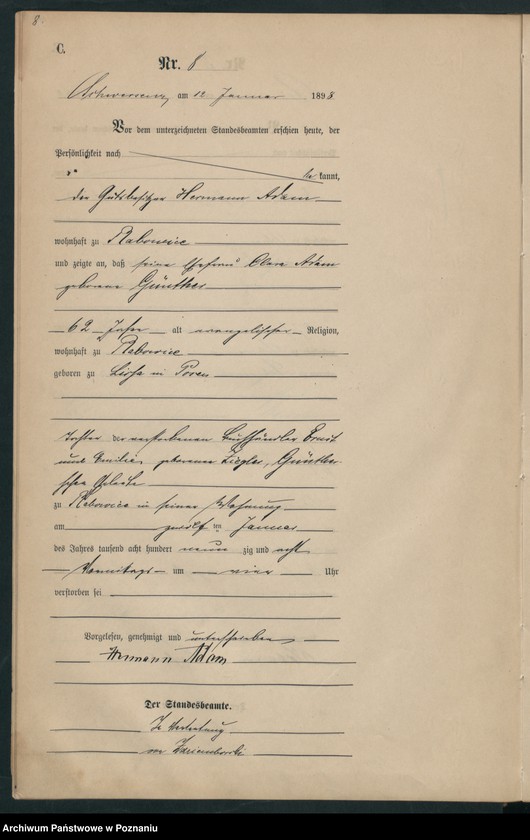 8.
C.
Nr. 8
Schwersenz, am 12 Januar 1898
Vor dem unterzeichneten Standesbeamten erschien heute, der
Persönlichkeit nach
be kannt,
der Gutsbesitzer Hermann Adam
wohnhaft zu Rabowice
und zeigte an, daß seine Ehefrau Clara Adam
geborene Günther
62 Jahre alt evangelischer Religion,
wohnhaft zu Rabowice
geboren zu Lissa in Posen
Tochter der verstorbenen Buchhändler Ernst
und Emilie, geborener Ziegler, Günther
schen Eheleute
zu Rabowice in seiner Wohnung
am zwölf ten Januar
des Jahres tausend acht hundert neun zig und acht
Vormittags um vier Uhr
verstorben sei
Vorgelesen, genehmigt und unterschrieben
Hermann Adam
Der Standesbeamte.
In Vertretung
Archiwum Państwowe w Poznaniu